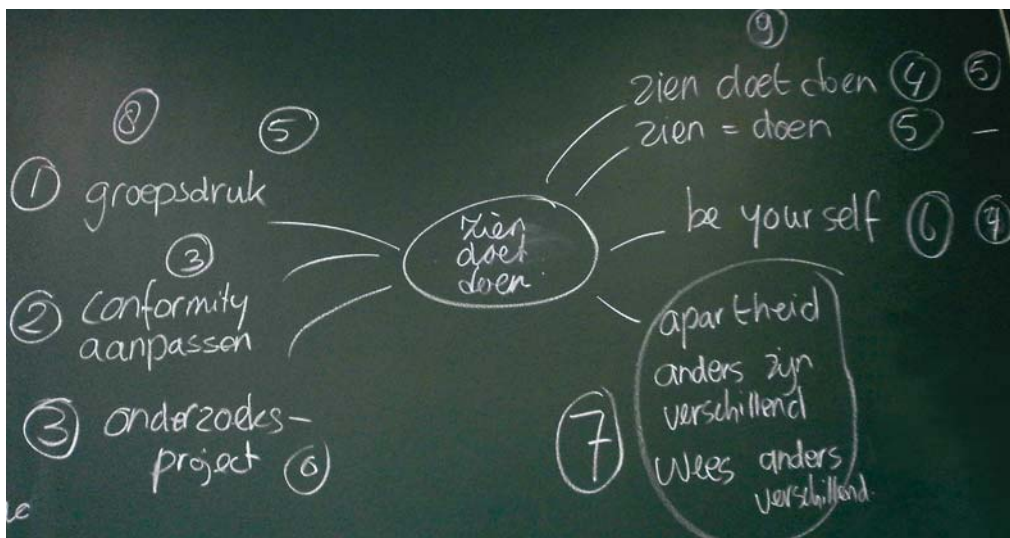 ⑧ ⑤
① groepsdruk
③
② conformity
aanpassen
③ onderzoeks-
project ⓪
zien
doet
doen
⑨
zien doet doen ④ ⑤
zien = doen ⑤ –
be yourself ⑥
⑦
apartheid
anders zijn
verschillend
wees anders
verschillend.